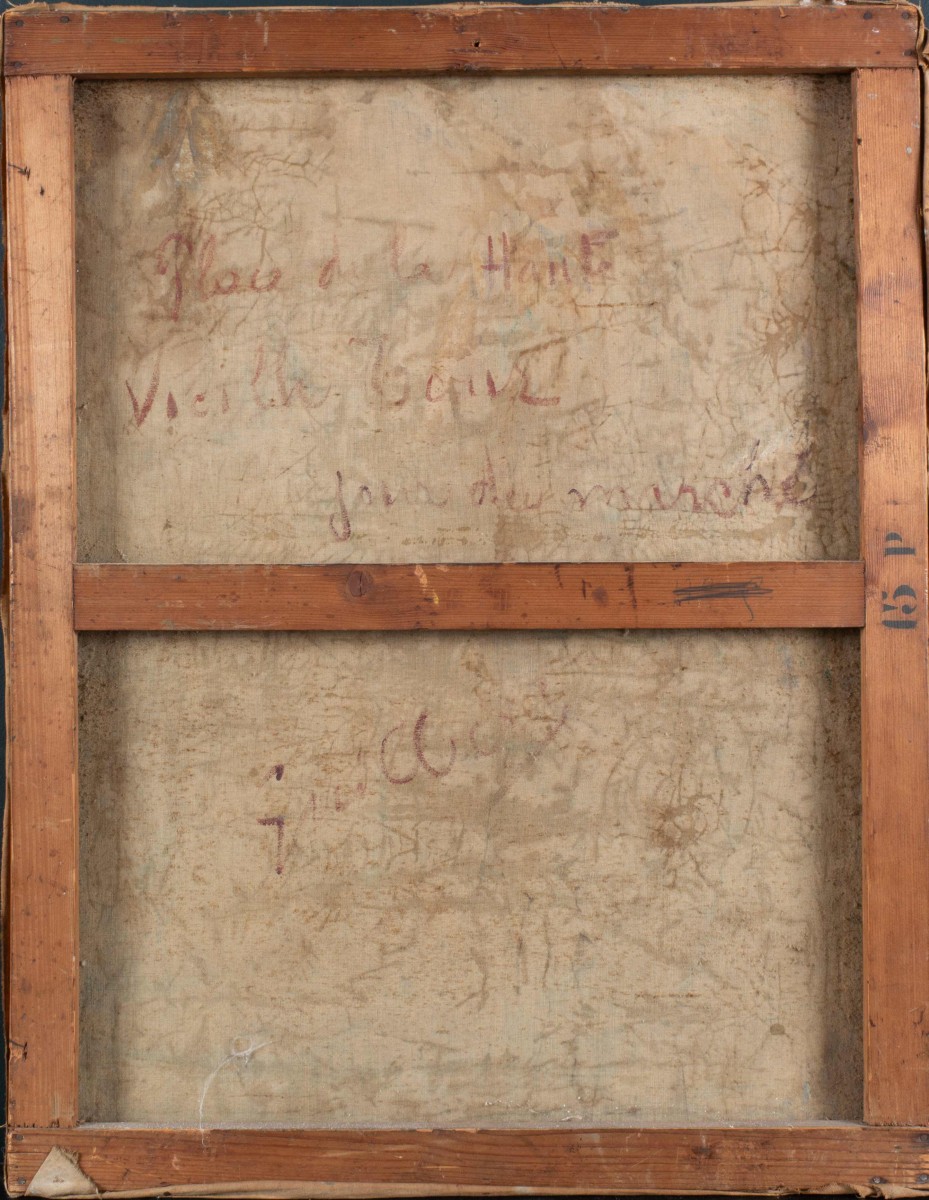 Place de la Haute
Vieille Tour
jour du marché
15 P